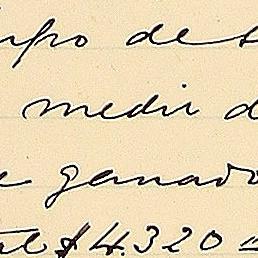 mpo de
medir d
e ganado
tal $ 4.320